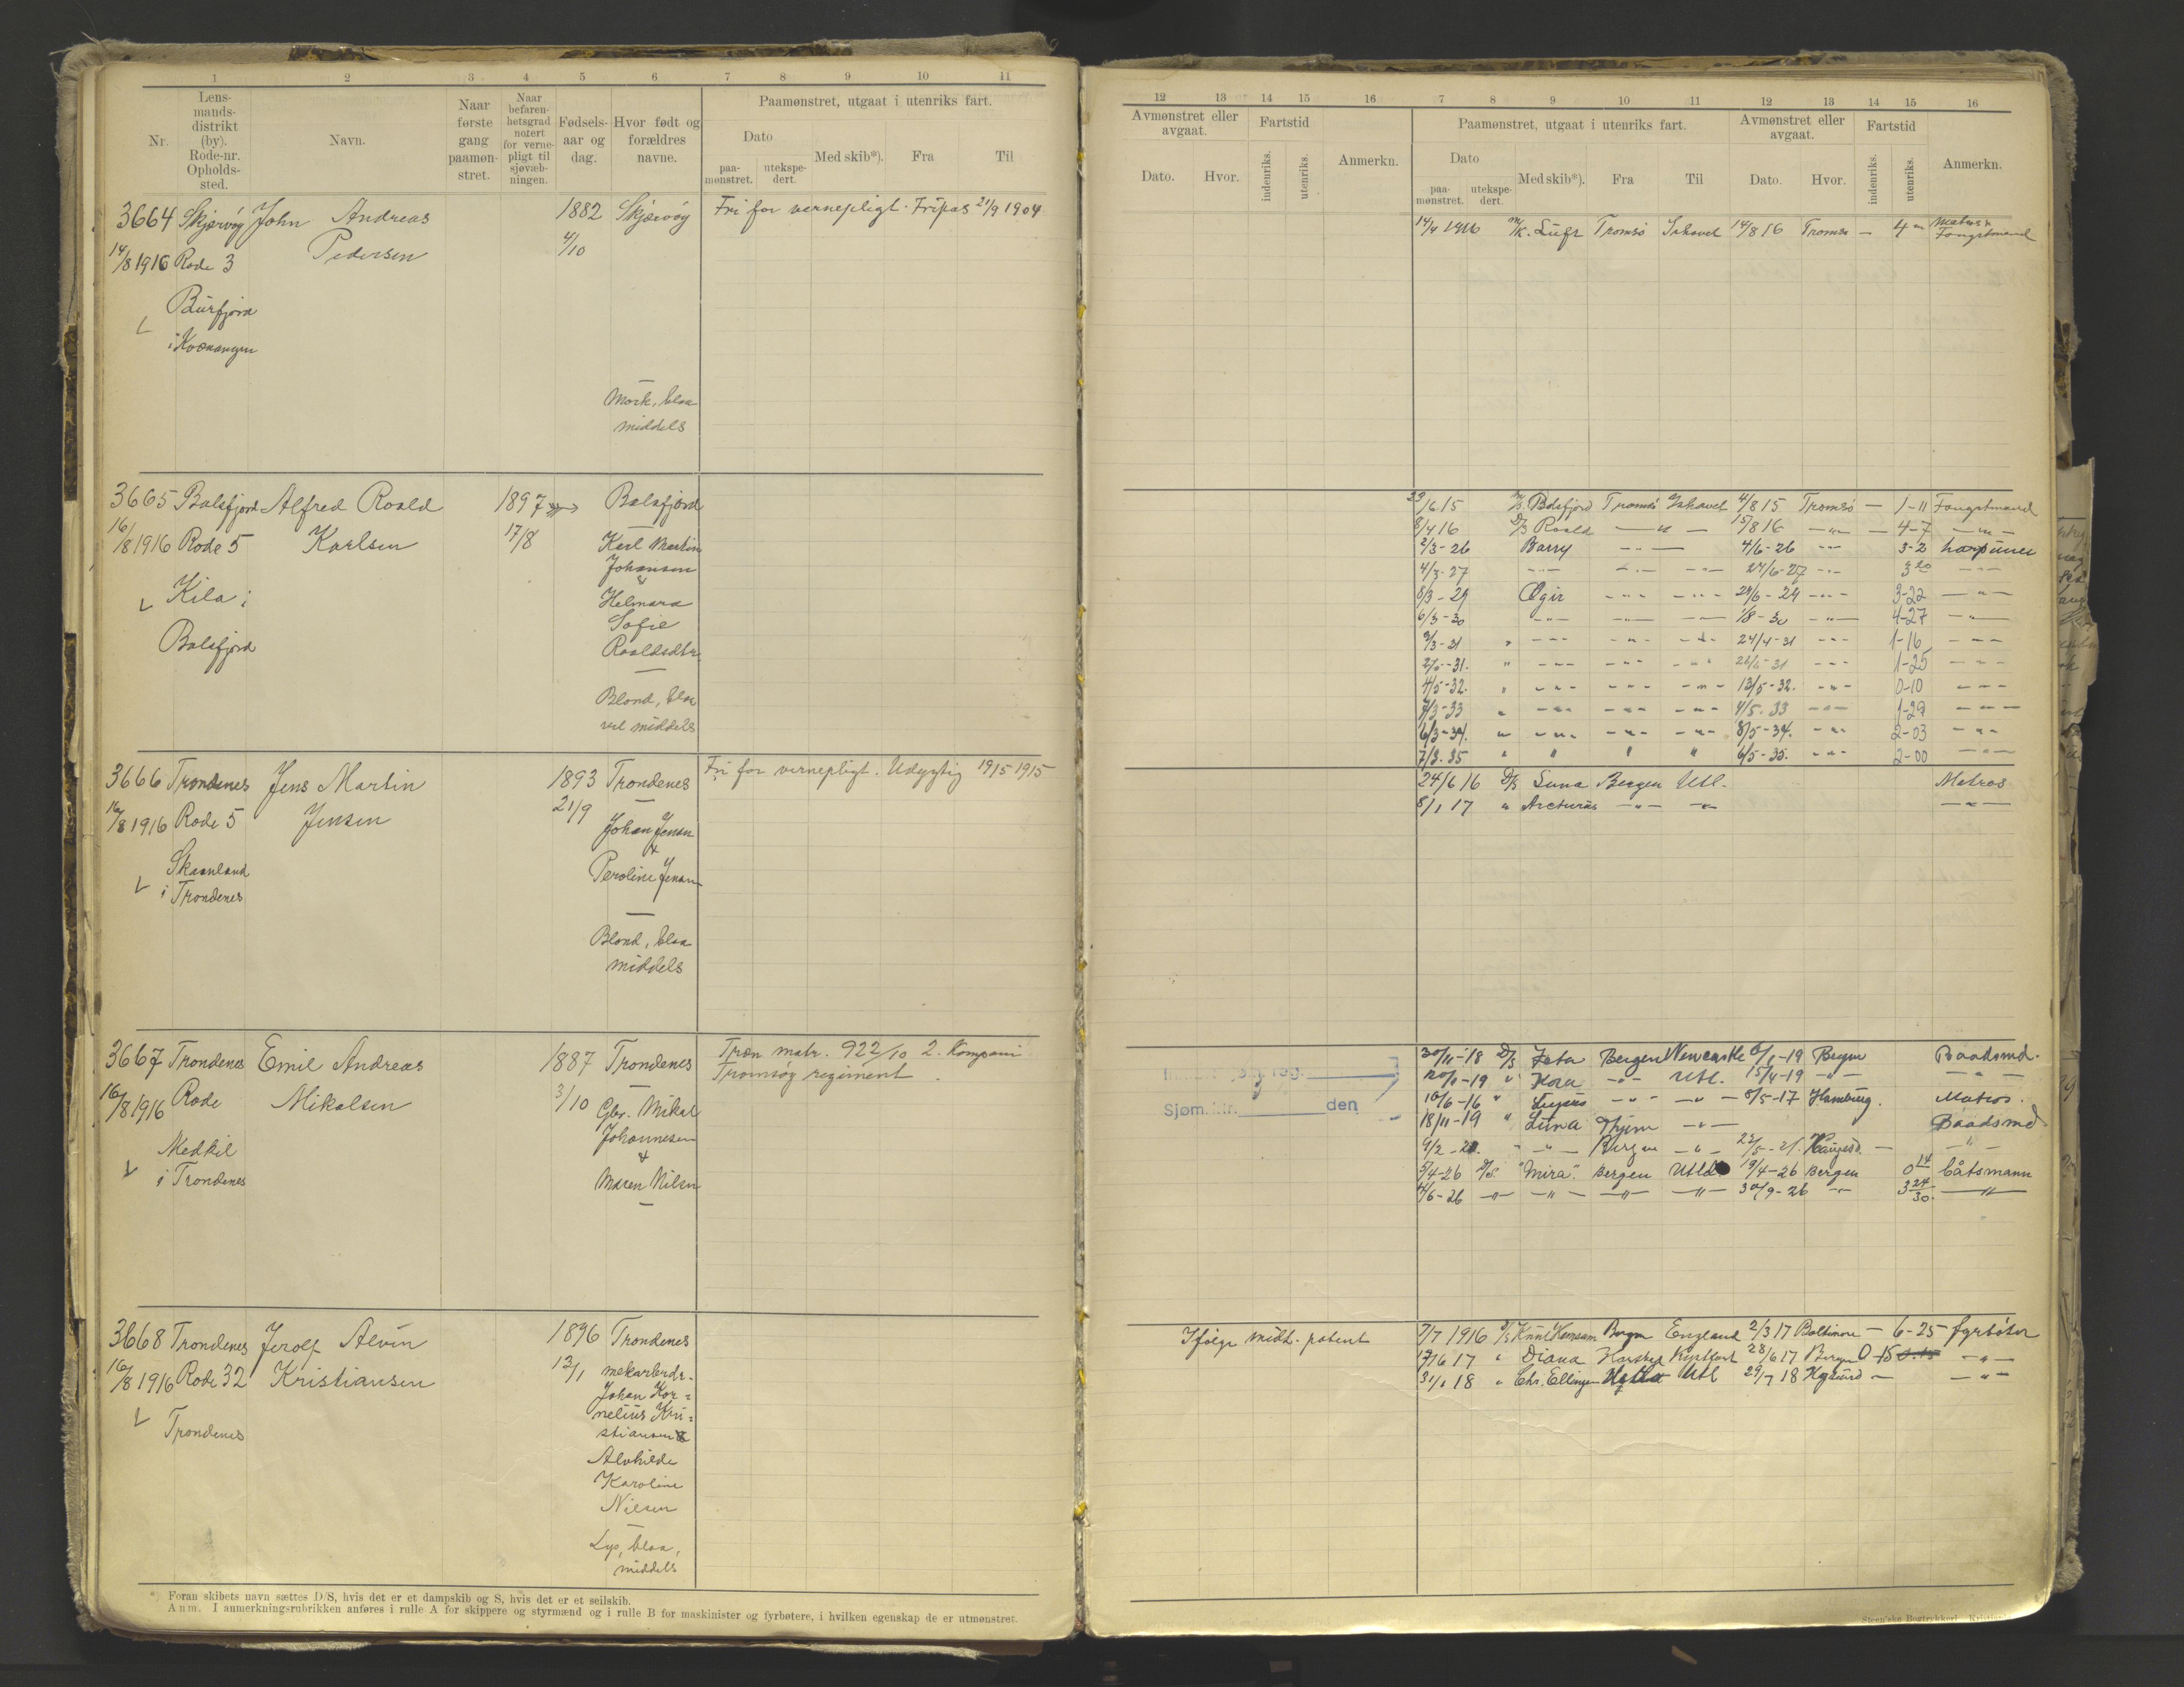 1 2 3 4 5 6 7 8 9 10 11
Nr. Lensmandsdistrikt (by). Rode-nr. Opholdssted. Navn. Naar første gang paamønstret. Naar befarenhetsgrad notert for vernepligt til sjøvæbningen. Fødselsaar og dag. Hvor født og forældres navne. Paamønstret, utgaat i utenriks fart.
Dato
paamønstret. utekspedert. Med skib*). Fra Til
3664 Skjervøy John Andreas 1882 Skjærvøy Fri for vernepligt. Fripas 21/9 1904
14/8 1916 Rode 3 Pedersen 4/10
Burfjord
i Kvænangen
Mørk, blaa
middels
3665 Balsfjord Alfred Roald 1897 Balsfjord
16/8 1916 Rode 5 Karlsen 17/8 Karl Martin
Johansen
&
Kila i Helmara
Sofie
Balsfjord Roaldsdtr.
Blond, blaa
vel middels
3666 Trondenes Jens Martin 1893 Trondenes Fri for vernepligt. Udygtig 1915 1915
16/8 1916 Rode 5 Jensen 21/9
Johan Jensen
&
Skaanland Peroline Jensen
i Trondenes
Blond, blaa
middels
3667 Trondenes Emil Andreas 1887 Trondenes Træn matr. 922/10 2. Kompani
16/8 1916 Rode Mikalsen 3/10 Tromsøy regiment.
Gbr. Mikal
Johannesen
Medkil &
i Trondenes Maren Nilsen
3668 Trondenes Jerolf Alvin 1896 Trondenes
16/8 1916 Rode 32 Kristiansen 13/1
Johan Kor=
nelius Kri=
Trondenes stiansen &
Alvhilde
Karoline
Nilsen
Lys, blaa,
middels
*) Foran skibets navn sættes D/S, hvis det er et dampskib og S, hvis det er et seilskib.
Anm. I anmerkningsrubrikken anføres i rulle A for skippere og styrmænd og i rulle B for maskinister og fyrbøtere, i hvilken egenskap de er utmønstret.
12 13 14 15 16 7 8 9 10 11 12 13 14 15 16
Avmønstret eller avgaat. Fartstid Paamønstret, utgaat i utenriks fart. Avmønstret eller avgaat. Fartstid
Dato. Hvor. indenriks. utenriks. Anmerkn. Dato paamønstret. utekspedert. Med skib*). Fra Til Dato. Hvor. indenriks. utenriks. Anmerkn.
14/4 1916 M/K. Tromsø Ishavet 14/8 16 Tromsø — 4 Matros &
Fangstmand
23/6 15 Balsfjord Tromsø Ishavet 4/8 15 Tromsø — 1-11 Fangstmand
8/4 16 Roald — " — 15/8 16 — " — 4-7 — " —
2/3-26 Barry — " — 4/6-26 — " — 3-2 harpuner
4/3-27 — " — — " — — " — 24/6-27 — " — 3 20 — " —
8/3-29 Ægir — " — — " — 29/6-29 — " — 3-22 — " —
6/3-30 — " — — " — — " — 1/8-30 — " — 4-27 — " —
9/3-31 " — " — — " — — " — 24/4-31 — " — 1-16 — " —
" — " — — " — — " — — " — 1-25 — " —
4/5-32. " — " — — " — — " — 13/5-32. — " — 0-10 — " —
7/3-33 " — " — — " — — " — 4/5-33 — " — 1-29 — " —
6/3-34. " — " — — " — — " — 8/5-34. — " — 2-03 — " —
7/3.35 " " " " 6/5-35. — " — 2-00 — " —
24/6 16 D/S Luna Bergen Utl. Matros
8/1 17 " Arcturus — " — — " — — " —
30/11-18 D/S Zeta Bergen Newcastle 6/1-19 Bergen Baadsmd.
20/1-19 " Kora — " — Utl. 15/4-19 — " — — " —
Sjøm. nr. den
10/6-16 " — " — — " — 8/5-17 Hamburg. Matros.
18/11-19 " Luna Thjem — " — Baadsmd
9/2-21. " — " — Bergen — " — Haugesd. — " —
5/4-26 D/S. "Mira". Bergen Utld 19/4-26 Bergen 0 14 båtsmann
4/6-26 — " — — " — — " — — " — 30/9-26 — " — 3 24/30. — " —
Ifølge midt. patent 7/7 1916 D/S Knut Hamsun Bergen England 2/3 17 Baltimore — 6-25 fyrbøter
17/6 17 " Diana Harstad Kystfart 28/6 17 Bergen 0-15 0.15 — " —
31/1 18 " Chr. Ellingsen Utl 29/7 18 — — " —
Steen'ske Bogtrykkeri